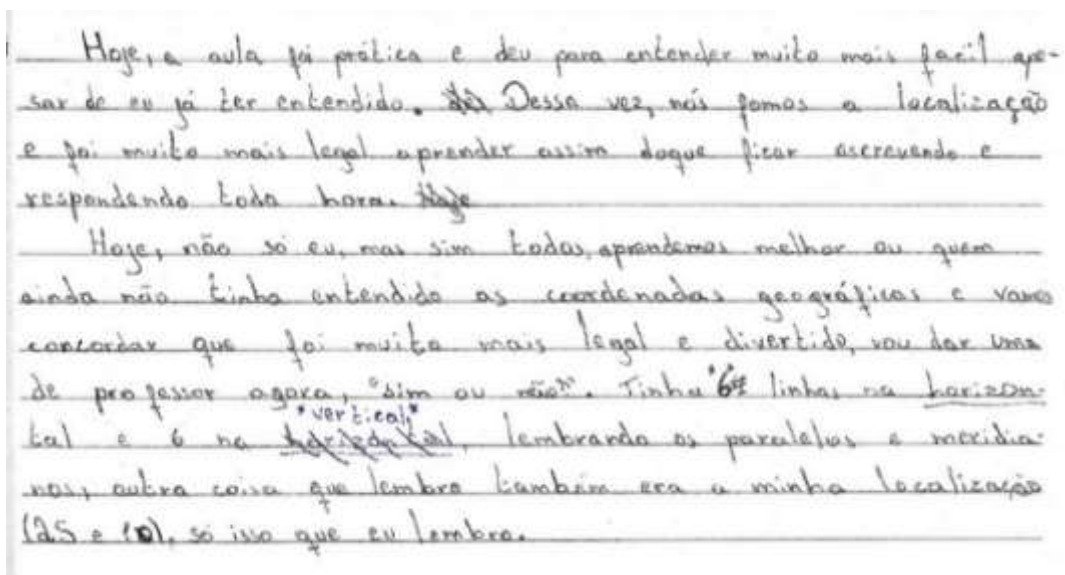 Hoje, a aula foi prática e deu para entender muito mais facil ape-
sar de eu já ter entendido. Dessa vez, nós fomos a localização
e foi muito mais legal aprender assim doque ficar escrevendo e
respondendo toda hora. Hoje
Hoje, não só eu, mas sim todos, aprendemos melhor ou quem
ainda não tinha entendido as coordenadas geográficas e vamos
concordar que foi muito mais legal e divertido, vou dar uma
de professor agora, "sim ou não". Tinha linhas na horizon-
"vertical"
tal e 6 na horizontal, lembrando os paralelos e meridia-
nos, outra coisa que lembro também era a minha localização
(25 e 10), só isso que eu lembro.